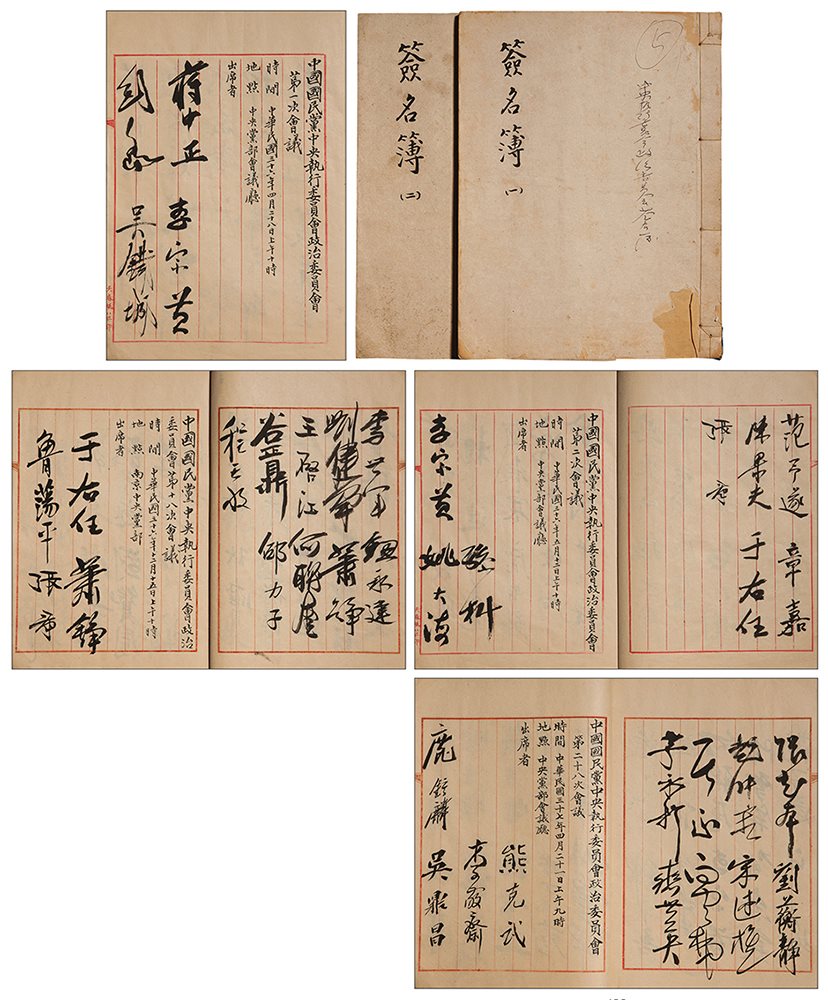 中國國民黨中央執行委員會政治委員會
第一次會議
時間 中華民國三十六年四月二十八日上午十時
地點 中央黨部會議廳
出席者
蔣中正 李宗黃
吳鐵城
簽名簿
(二)
簽名簿
(一)
5
范予遂 章嘉
陳果夫 于右任
張羣
中國國民黨中央執行委員會政治委員會
第二次會議
時間 中華民國三十六年五月十三日上午十時
地點 中央黨部會議廳
出席者
孫科
李宗黃 姚大海
劉健羣 蕭錚
王啓江 何聯奎
谷正鼎 邵力子
程天放
中國國民黨中央執行委員會政治
委員會第十八次會議
時間 中華民國三十六年十二月十五日上午十時
地點 南京中央黨部
出席者
于右任 蕭錚
魯蕩平 張羣
張知本 劉蘅靜
宋述樵
李永新 齊世英
中國國民黨中央執行委員會政治委員會
第二十八次會議
時間 中華民國三十七年四月二十一日上午九時
地點 中央黨部會議廳
出席者
熊克武
李敬齋
鹿鍾麟 吳鼎昌